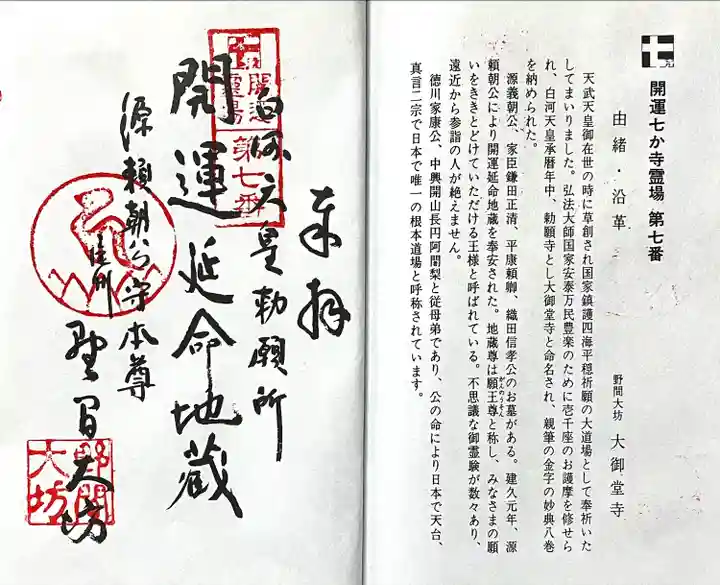 開運七か寺霊場 第七番
由緒・沿革
野間大坊 大御堂寺
天武天皇御在世の時に草創され国家鎮護四海平穏祈願の大道場として奉祈いた
してまいりました。弘法大師国家安泰万民豊楽のために壱千座のお護摩を修せら
れ、白河天皇承暦年中、勅願寺とし大御堂寺と命名され、親筆の金字の妙典八巻
を納められた。
源義朝公、家臣鎌田正清、平康頼卿、織田信孝公のお墓がある。建久元年、源
頼朝公により開運延命地蔵を奉安された。地蔵尊は願王尊と称し、みなさまの願
いをききとどけていただける王様と呼ばれている。不思議な御霊験が数々あり、
遠近から参詣の人が絶えません。
徳川家康公、中興開山長円阿闍梨と従母弟であり、公の命により日本で天台、
真言二宗で日本で唯一の根本道場と呼称されています。
奉拝
白河天皇勅願所
開運
霊場
第七番
開運延命地蔵
源頼朝公守本尊
尾州
野間大坊
野間
大坊